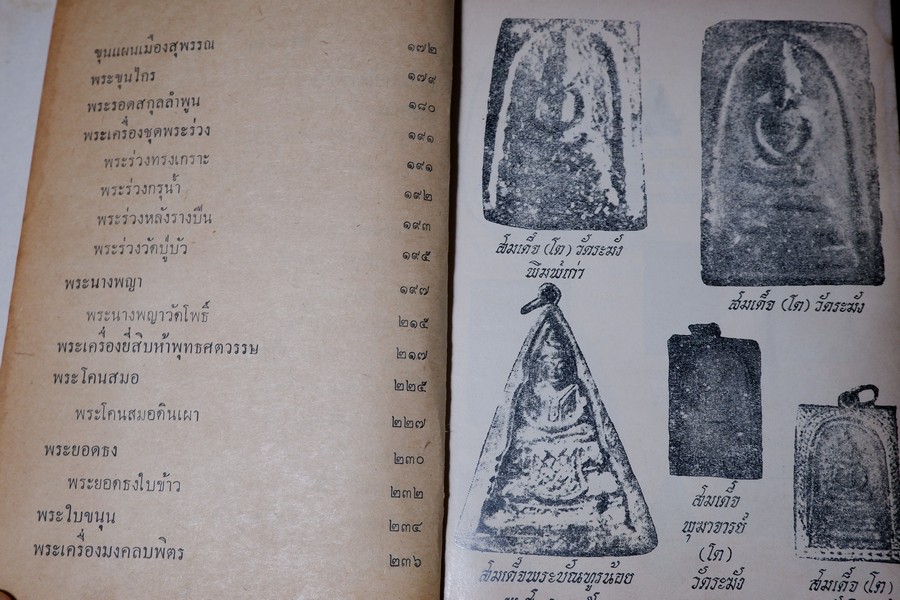 ขุนแผนเมืองสุพรรณ ๑๗๒
พระขุนไกร ๑๗๙
พระรอดสกุลลำพูน ๑๘๐
พระเครื่องชุดพระร่วง ๑๙๑
พระร่วงทรงเกราะ ๑๙๑
พระร่วงกรุน้ำ ๑๙๒
พระร่วงหลังรางปืน ๑๙๓
พระร่วงวัดปู่บัว ๑๙๕
พระนางพญา ๑๙๗
พระนางพญาวัดโพธิ์ ๒๑๕
พระเครื่องยี่สิบห้าพุทธศตวรรษ ๒๑๗
พระโคนสมอ ๒๒๕
พระโคนสมอดินเผา ๒๒๗
พระยอดธง ๒๓๐
พระยอดธงใบข้าว ๒๓๒
พระใบขนุน ๒๓๔
พระเครื่องมงคลบพิตร ๒๓๖
สมเด็จ (โต) วัดระฆัง
พิมพ์เก่า
สมเด็จ (โต) วัดระฆัง
สมเด็จพระบัณฑูรน้อย
สมเด็จ
พุฒาจารย์
(โต)
วัดระฆัง
สมเด็จ (โต)